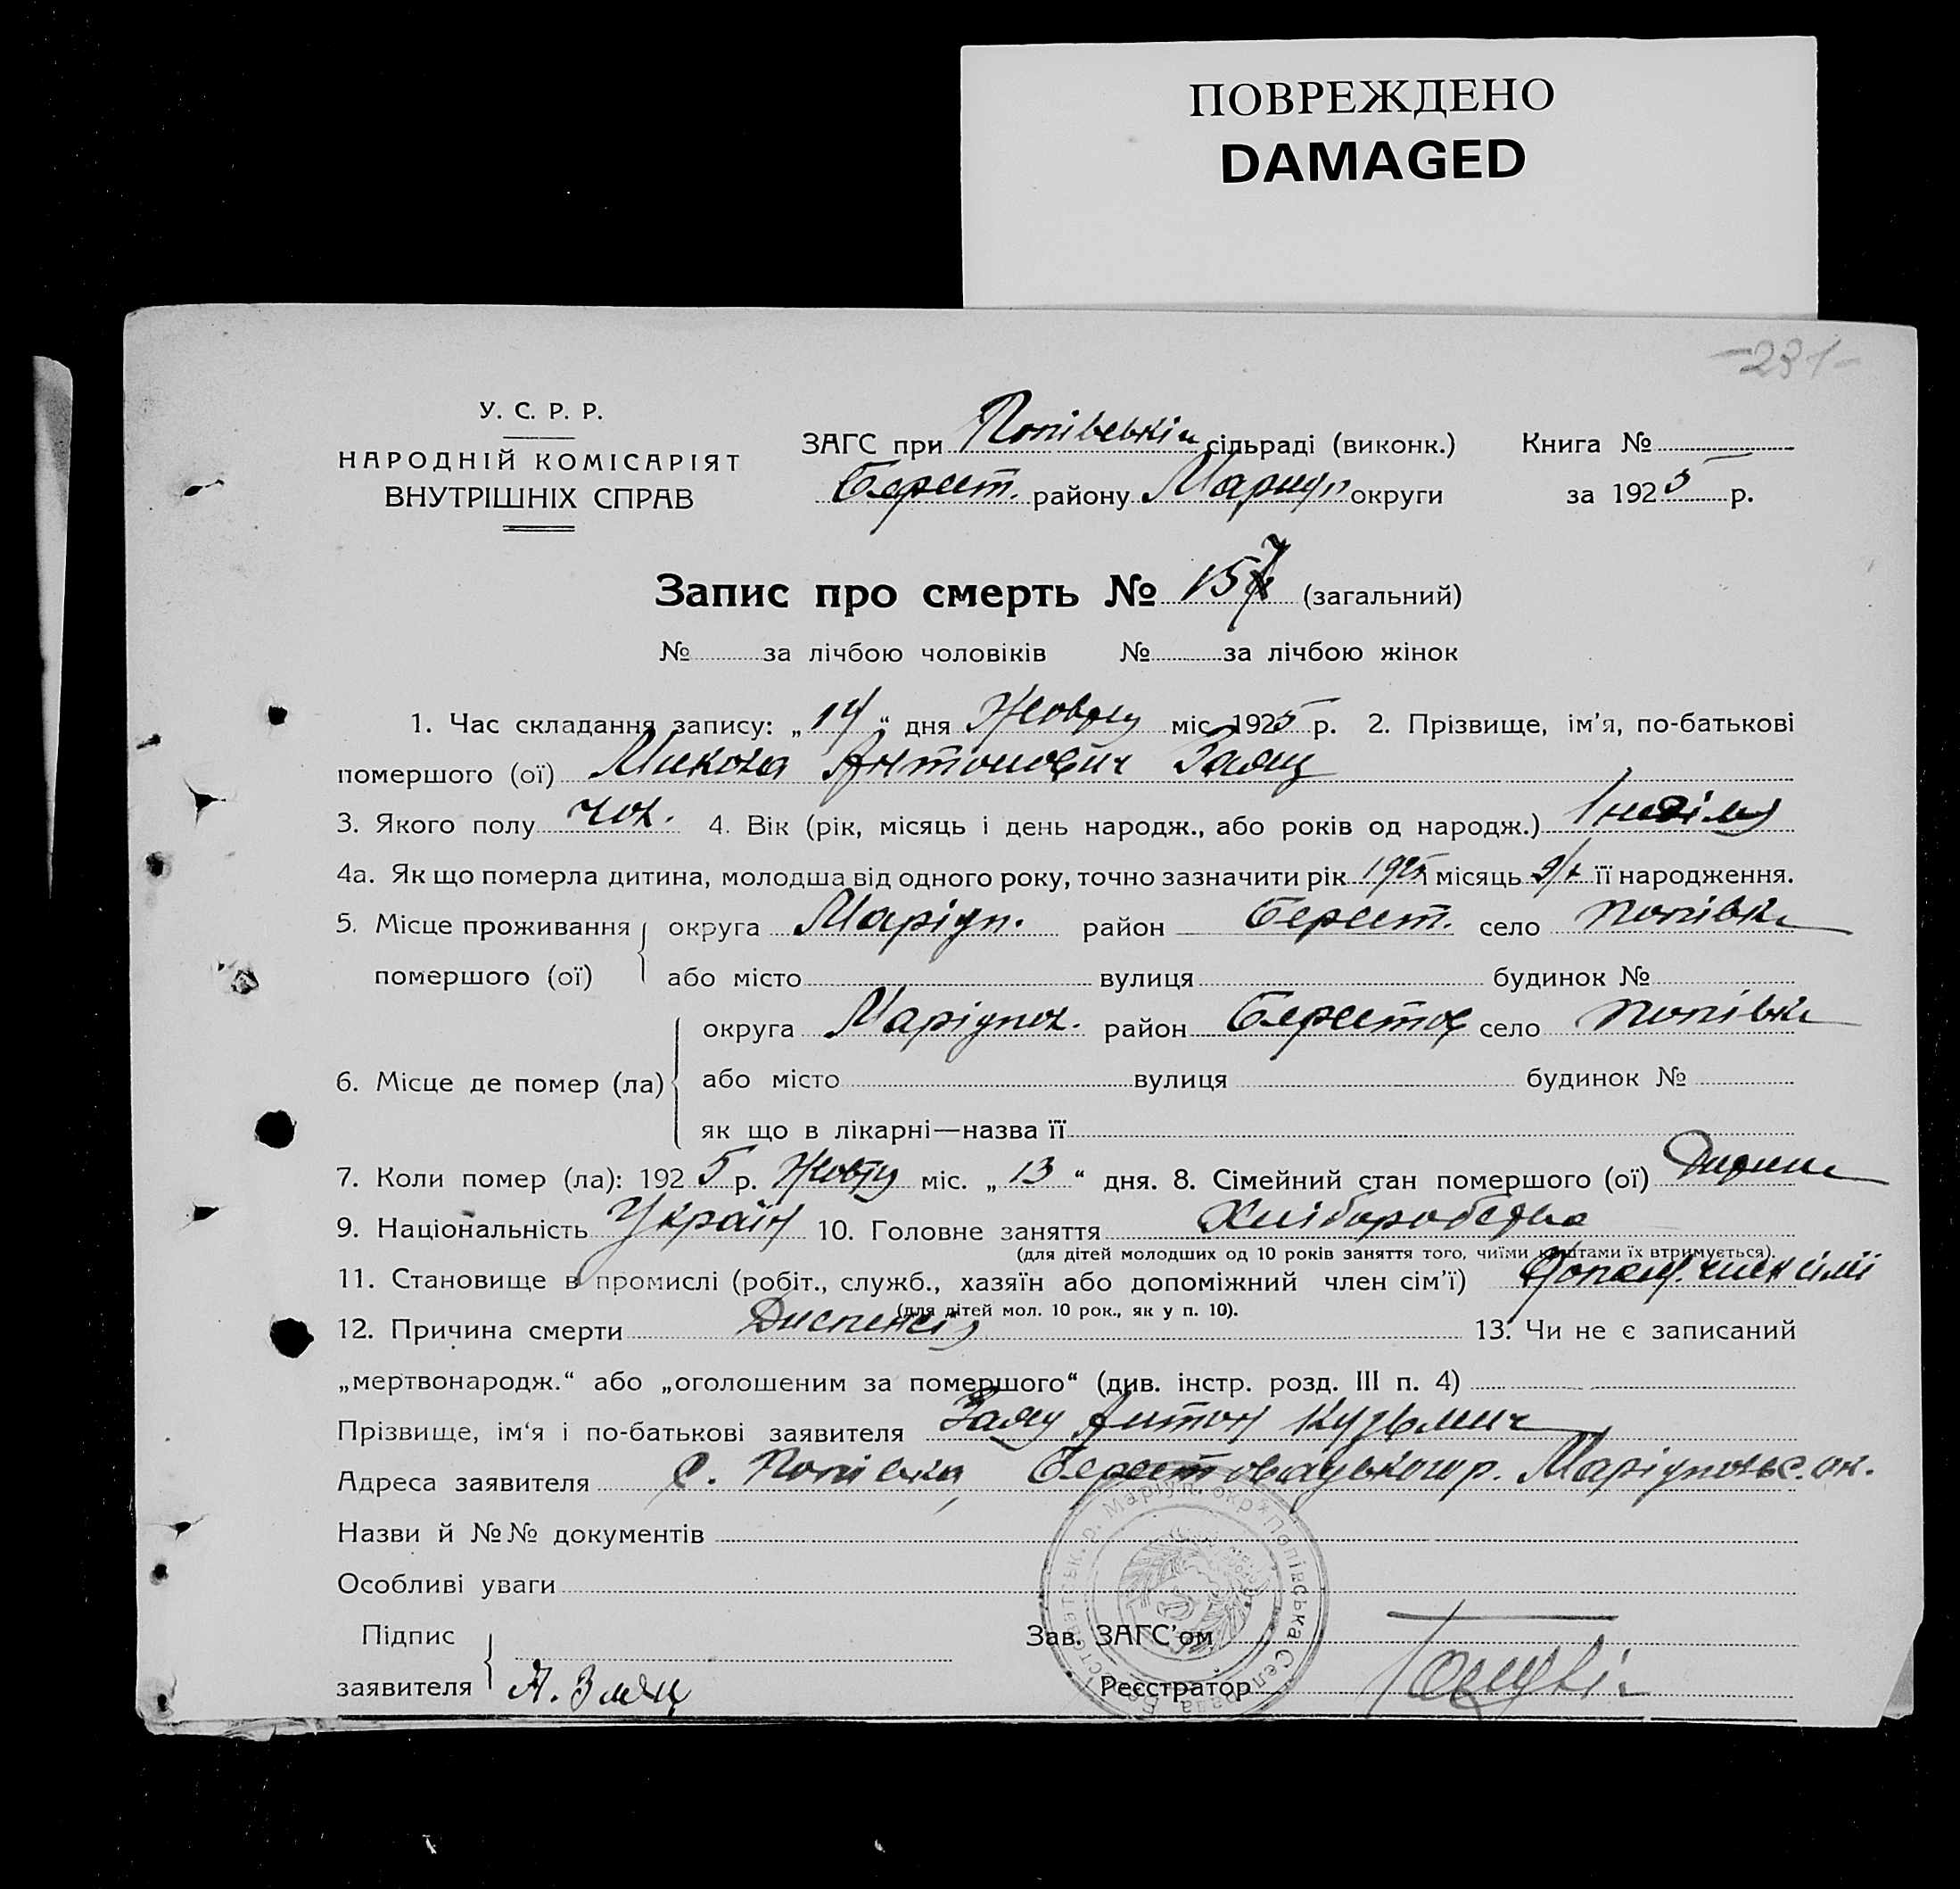 ПОВРЕЖДЕНО
DAMAGED
-231-
У. С. Р. Р.
НАРОДНІЙ КОМІСАРІЯТ
ВНУТРІШНІХ СПРАВ
ЗАГС при Попівській сільраді (виконк.) Книга №
Берест. району Маріуп округи за 1925 р.
Запис про смерть № 157 (загальний)
№ за лічбою чоловіків № за лічбою жінок
1. Час складання запису: „14“ дня Жовту міс. 1925 р. 2. Прізвище, ім'я, по-батькові
помершого (ої) Микола Антонович Заяц
3. Якого полу чол. 4. Вік (рік, місяць і день народж., або років од народж.) 1 неділя
4а. Як що померла дитина, молодша від одного року, точно зазначити рік 1925 і місяць її народження.
5. Місце проживання округа Маріуп. район Берест. село Попівка
помершого (ої) або місто вулиця будинок №
округа Маріупол. район Берестов село Попівка
6. Місце де помер (ла) або місто вулиця будинок №
як що в лікарні—назва її
7. Коли помер (ла): 1925 р. Жовту міс. „13“ дня. 8. Сімейний стан помершого (ої) Дитина
9. Національність Україн 10. Головне заняття Хліборобство
(для дітей молодших од 10 років заняття того, чиїми коштами їх втримується).
11. Становище в промислі (робіт., служб., хазяїн або допоміжний член сім'ї) Допом. член сімї
(для дітей мол. 10 рок., як у п. 10).
12. Причина смерти Диспепсія 13. Чи не є записаний
„мертвонародж.“ або „оголошеним за помершого“ (див. інстр. розд. III п. 4)
Прізвище, ім'я і по-батькові заявителя Заяц Антон Кузьмич
Адреса заявителя с. Попівка, Берестовацького р. Маріупольс. ок.
Назви й №№ документів
Особливі уваги
Підпис
заявителя А. Заяц
Зав. ЗАГС'ом
Реєстратор
Берестоватськ. р. Маріуп. окр. Попівська Сел. Рада